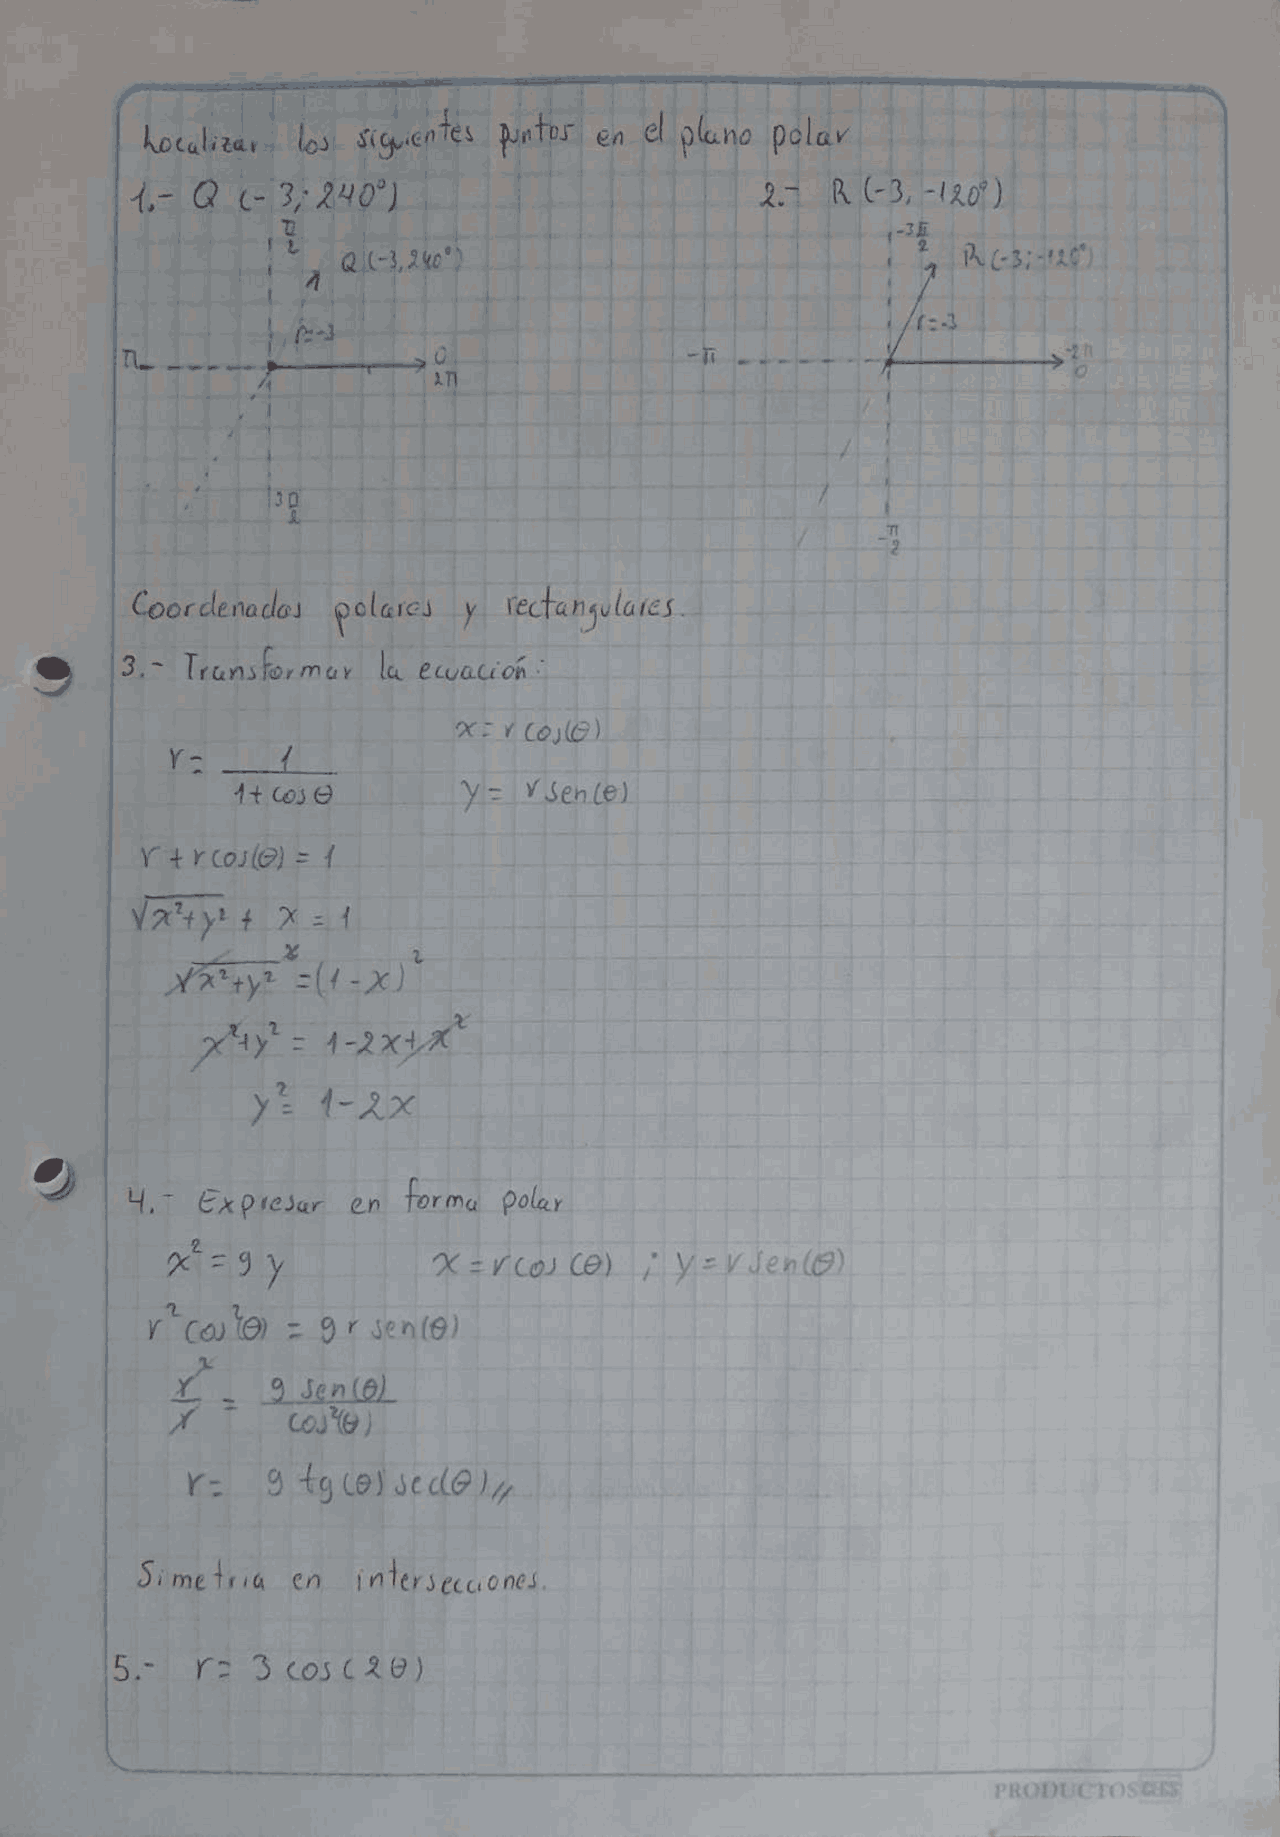 Localizar los siguientes puntos en el plano polar
1.- Q (-3; 240°)
2.- R (-3, -120°)
π/2
Q (-3, 240°)
r=-3
π
0
2π
3π/2
-3π/2
R (-3; -120°)
r=-3
-π
-2π
0
-π/2
Coordenadas polares y rectangulares.
3.- Transformar la ecuación:
r = 1/(1+cosθ)
x = r cos(θ)
y = r sen(θ)
r + r cos(θ) = 1
√(x²+y²) + x = 1
√(x²+y²)² = (1-x)²
x²+y² = 1-2x+x²
y² = 1-2x
4.- Expresar en forma polar
x² = 9y
x = r cos(θ) ; y = r sen(θ)
r² cos²(θ) = 9 r sen(θ)
r²/r = 9 sen(θ)/cos²(θ)
r = 9 tg(θ) sec(θ)//
Simetria en intersecciones.
5.- r = 3 cos(2θ)